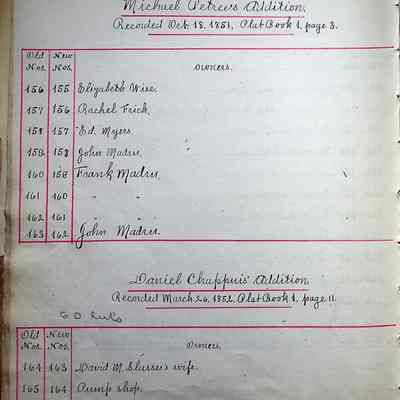 Michael Petree's Addition.
Recorded Oct. 18. 1851, Plat Book 1, page 3.
Old New
Nos. Nos. Owners.
156 155 Elizabeth Wise.
157 156 Rachel Frick.
158 157 Ed. Myers.
159 158 John Madru.
160 159 Frank Madru.
161 160 " "
162 161 " "
163 162 John Madru.
Daniel Chappuis' Addition.
Recorded March 26, 1852, Plat Book 1, page 11.
60 Lots
Old New
Nos. Nos. Owners.
164 163 David M. Slusser's wife.
165 164 Pump shop.